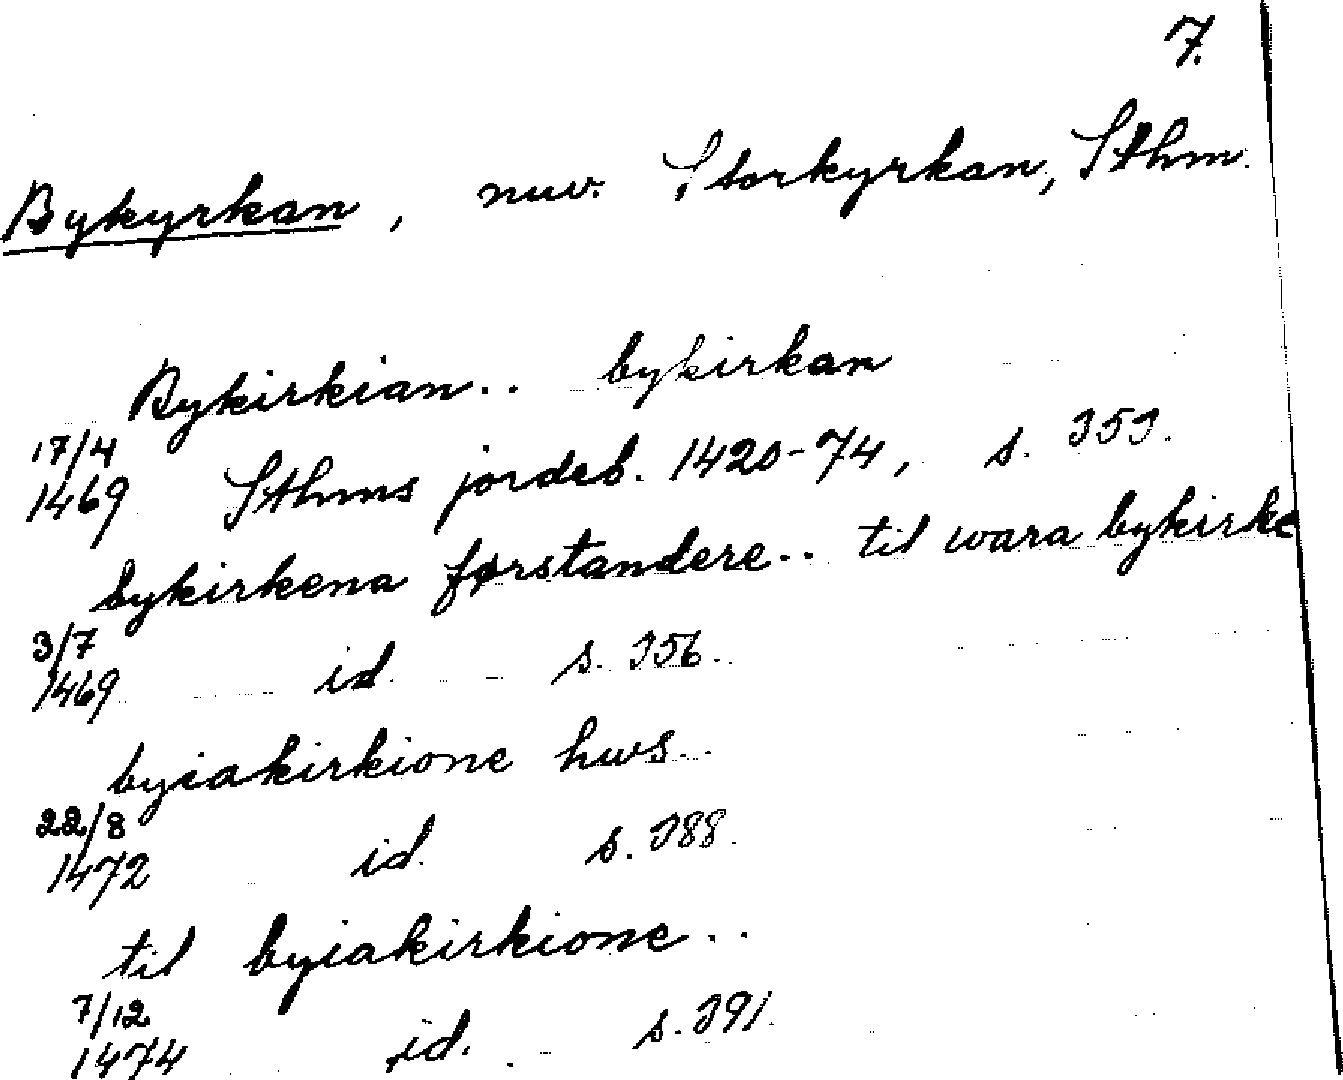 7.
Bykyrkan, nuv. Storkyrkan, Sthm.
Bykirkian.. bykirkan
17/4
1469 Sthms jordeb. 1420-74, s. 353.
bykirkena førstandere.. til wara bykirke
3/7
1469 id. s. 356.
byiakirkione hws..
22/8
1472 id. s. 388.
til byiakirkione..
7/12
1474 id. s. 391.